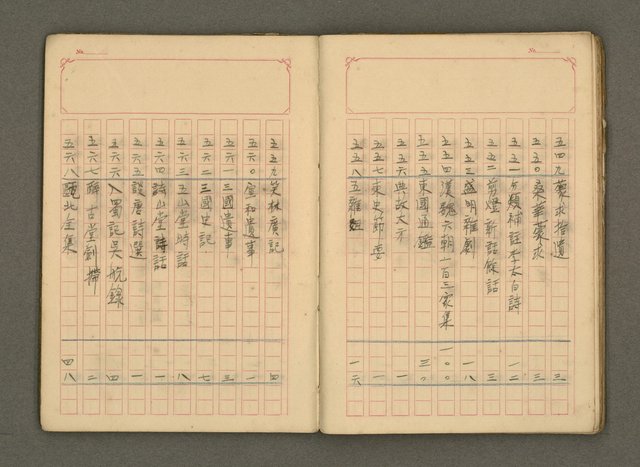 No.
五四九蒙求指遺 三
五五〇桑華蒙求 三
五五一分類補註李太白詩 一二
五五二剪燈新話餘話 三
五五三盛明雜劇 一八
五五四漢魏六朝一百三家集 一〇〇
五五五東國通鑑 三〇
五五六典故大方 一
五五七東史節要 一
五五八五雜俎 一六
No.
五五九笑林廣記 四
五六〇宣和遺事 一
五六一三國遺事 三
五六二三國史記 七
五六三五山堂詩話 八
五六四詩山堂詩話 一
五六五談唐詩選 一
五六六入蜀記吳航錄 四
五六七蘇古堂劍掃 二
五六八甌北全集 四八